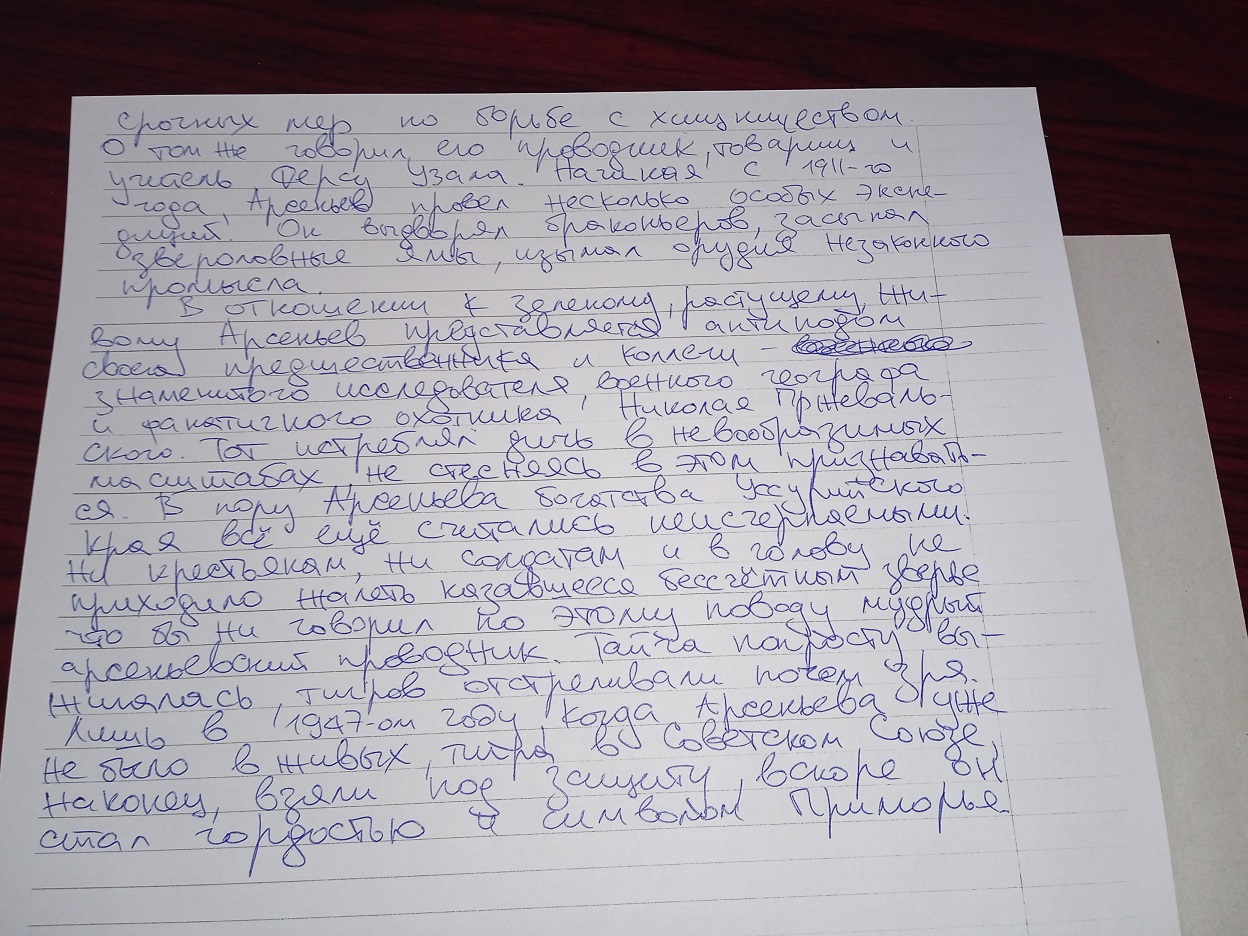 срочных мер по борьбе с хищничеством.
О том же говорил его проводник, товарищ и
учитель Дерсу Узала. Начиная с 1911-го
года, Арсеньев провел несколько особых экспе-
диций. Он выдворял браконьеров, засыпал
звероловные ямы, изымал орудия незаконного
промысла.
В отношении к зеленому, растущему, жи-
вому Арсеньев представляется антиподом
своего предшественника и коллеги -
знаменитого исследователя, военного географа
и фанатичного охотника Николая Пржеваль-
ского. Тот истреблял дичь в невообразимых
масштабах, не стесняясь в этом признавать-
ся. В пору Арсеньева богатства Уссурийского
края всё ещё считались неисчерпаемыми.
Ни крестьянам, ни солдатам и в голову не
приходило жалеть казавшееся бессчётным зверьё
что бы ни говорил по этому поводу мудрый
арсеньевский проводник. Тайга попросту вы-
жигалась, тигров отстреливали почем зря.
Лишь в 1947-ом году, когда Арсеньева уже
не было в живых, тигра в Советском Союзе,
наконец, взяли под защиту, вскоре он
стал гордостью и символом Приморья.